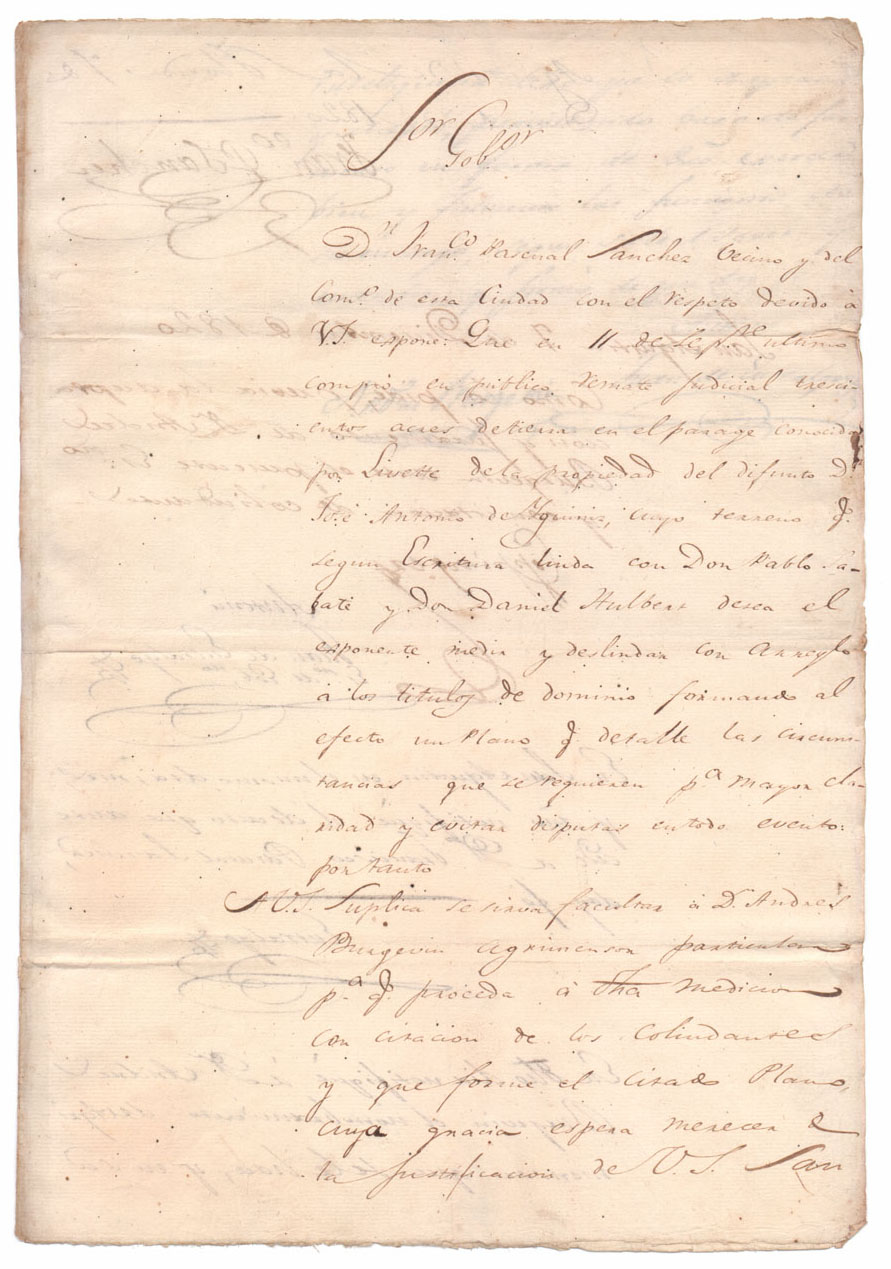 Sor Gobor
Dn Franco Pascual Sanchez Vecino y del
Como de esta Ciudad con el respeto devido à
V.S. expone: Que en 11 de Sepre ultimo
compró en público remate judicial tresci-
entos acres de tierra en el parage conocido
por Lisette de la propiedad del difunto Dn
José Antonio de Yguiniz, cuyo terreno q.
segun Escritura linda con Don Pablo Sa-
baté y Don Daniel Hulbert desea el
esponente medir y deslindar con arreglo
á los titulos de dominio formando al
efecto un Plano q detalle las circuns-
tancias que se requieren pa mayor cla-
ridad y evitar disputas en todo evento:
por tanto
A V.S. Suplica se sirva facultar à D. Andres
Burgevin agrimensor particular
pa q proceda à dha medicion
con citacion de los colindantes
y que forme el citado Plano,
cuya gracia espera merecer de
la justificacion de V.S. San